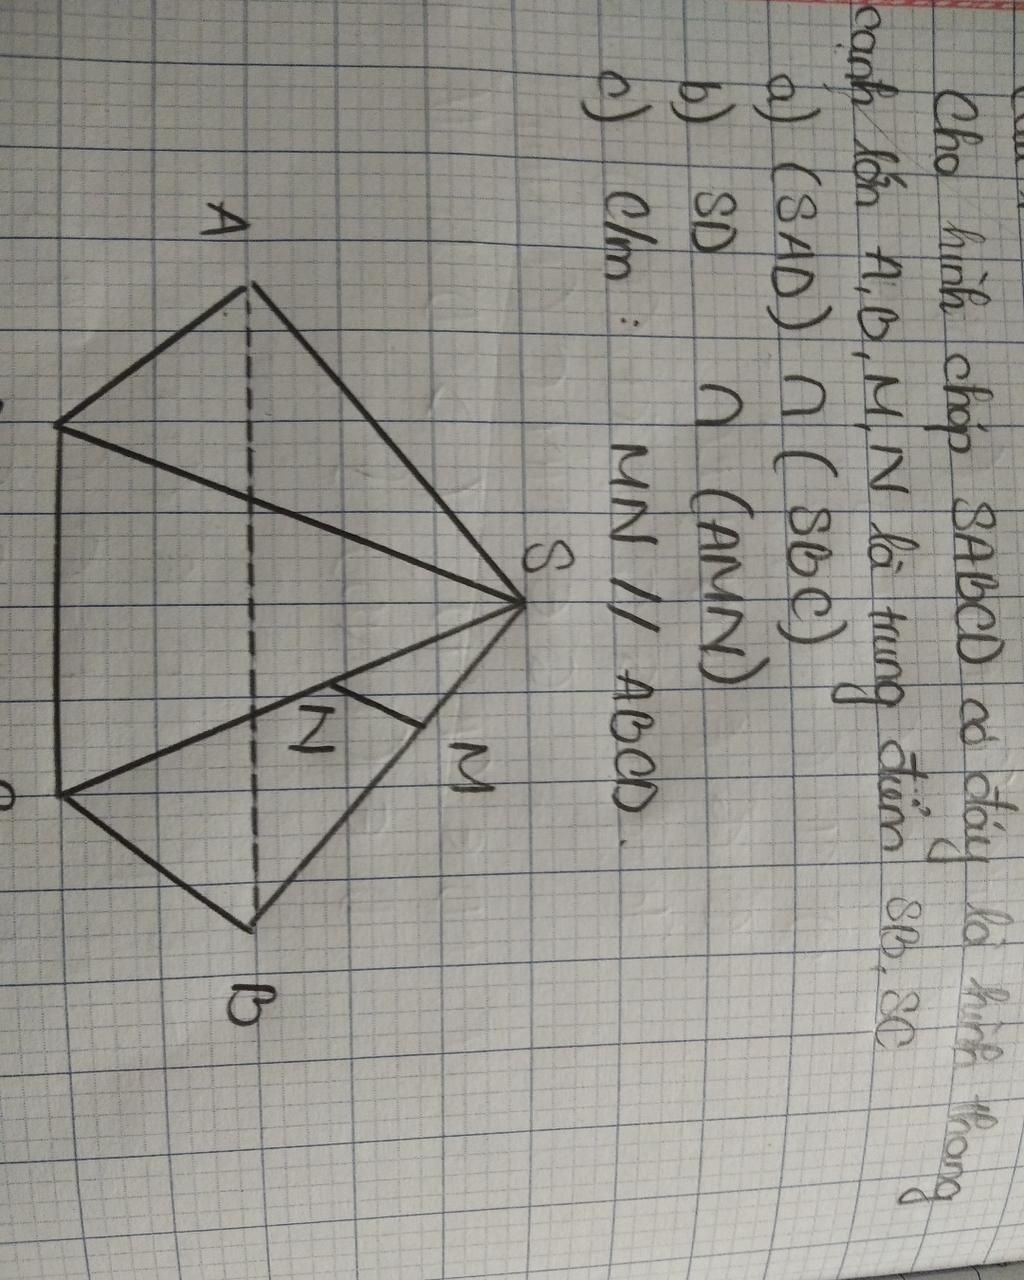 Cho hình chóp SABCD có đáy là hình thang
cạnh lớn A,B, M,N là trung điểm SB, SC
a) (SAD) ∩ (SBC)
b) SD ∩ (AMN)
c) C/m : MN // ABCD.
S
M
N
A
B